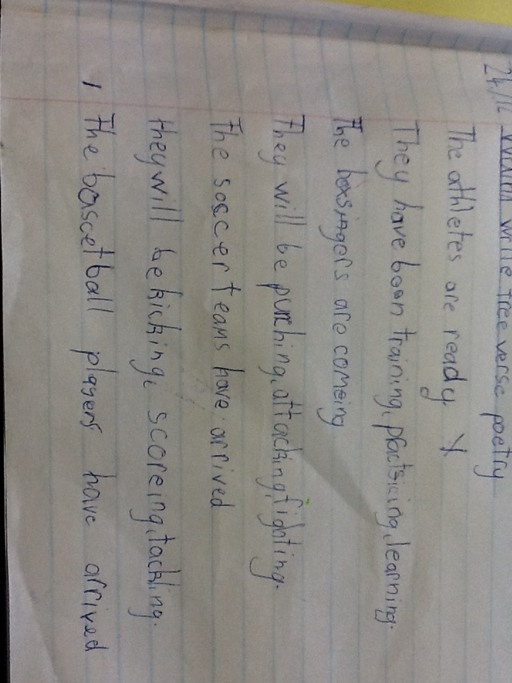 24/11 WALT: write free verse poetry
The athletes are ready
They have been training, practsicing, learning.
The boxsingers are comeing
They will be punching, attacking, fighting.
The soccer teams have arrived
they will be kicking, scoreing, tackling.
The bascetball players have arrived